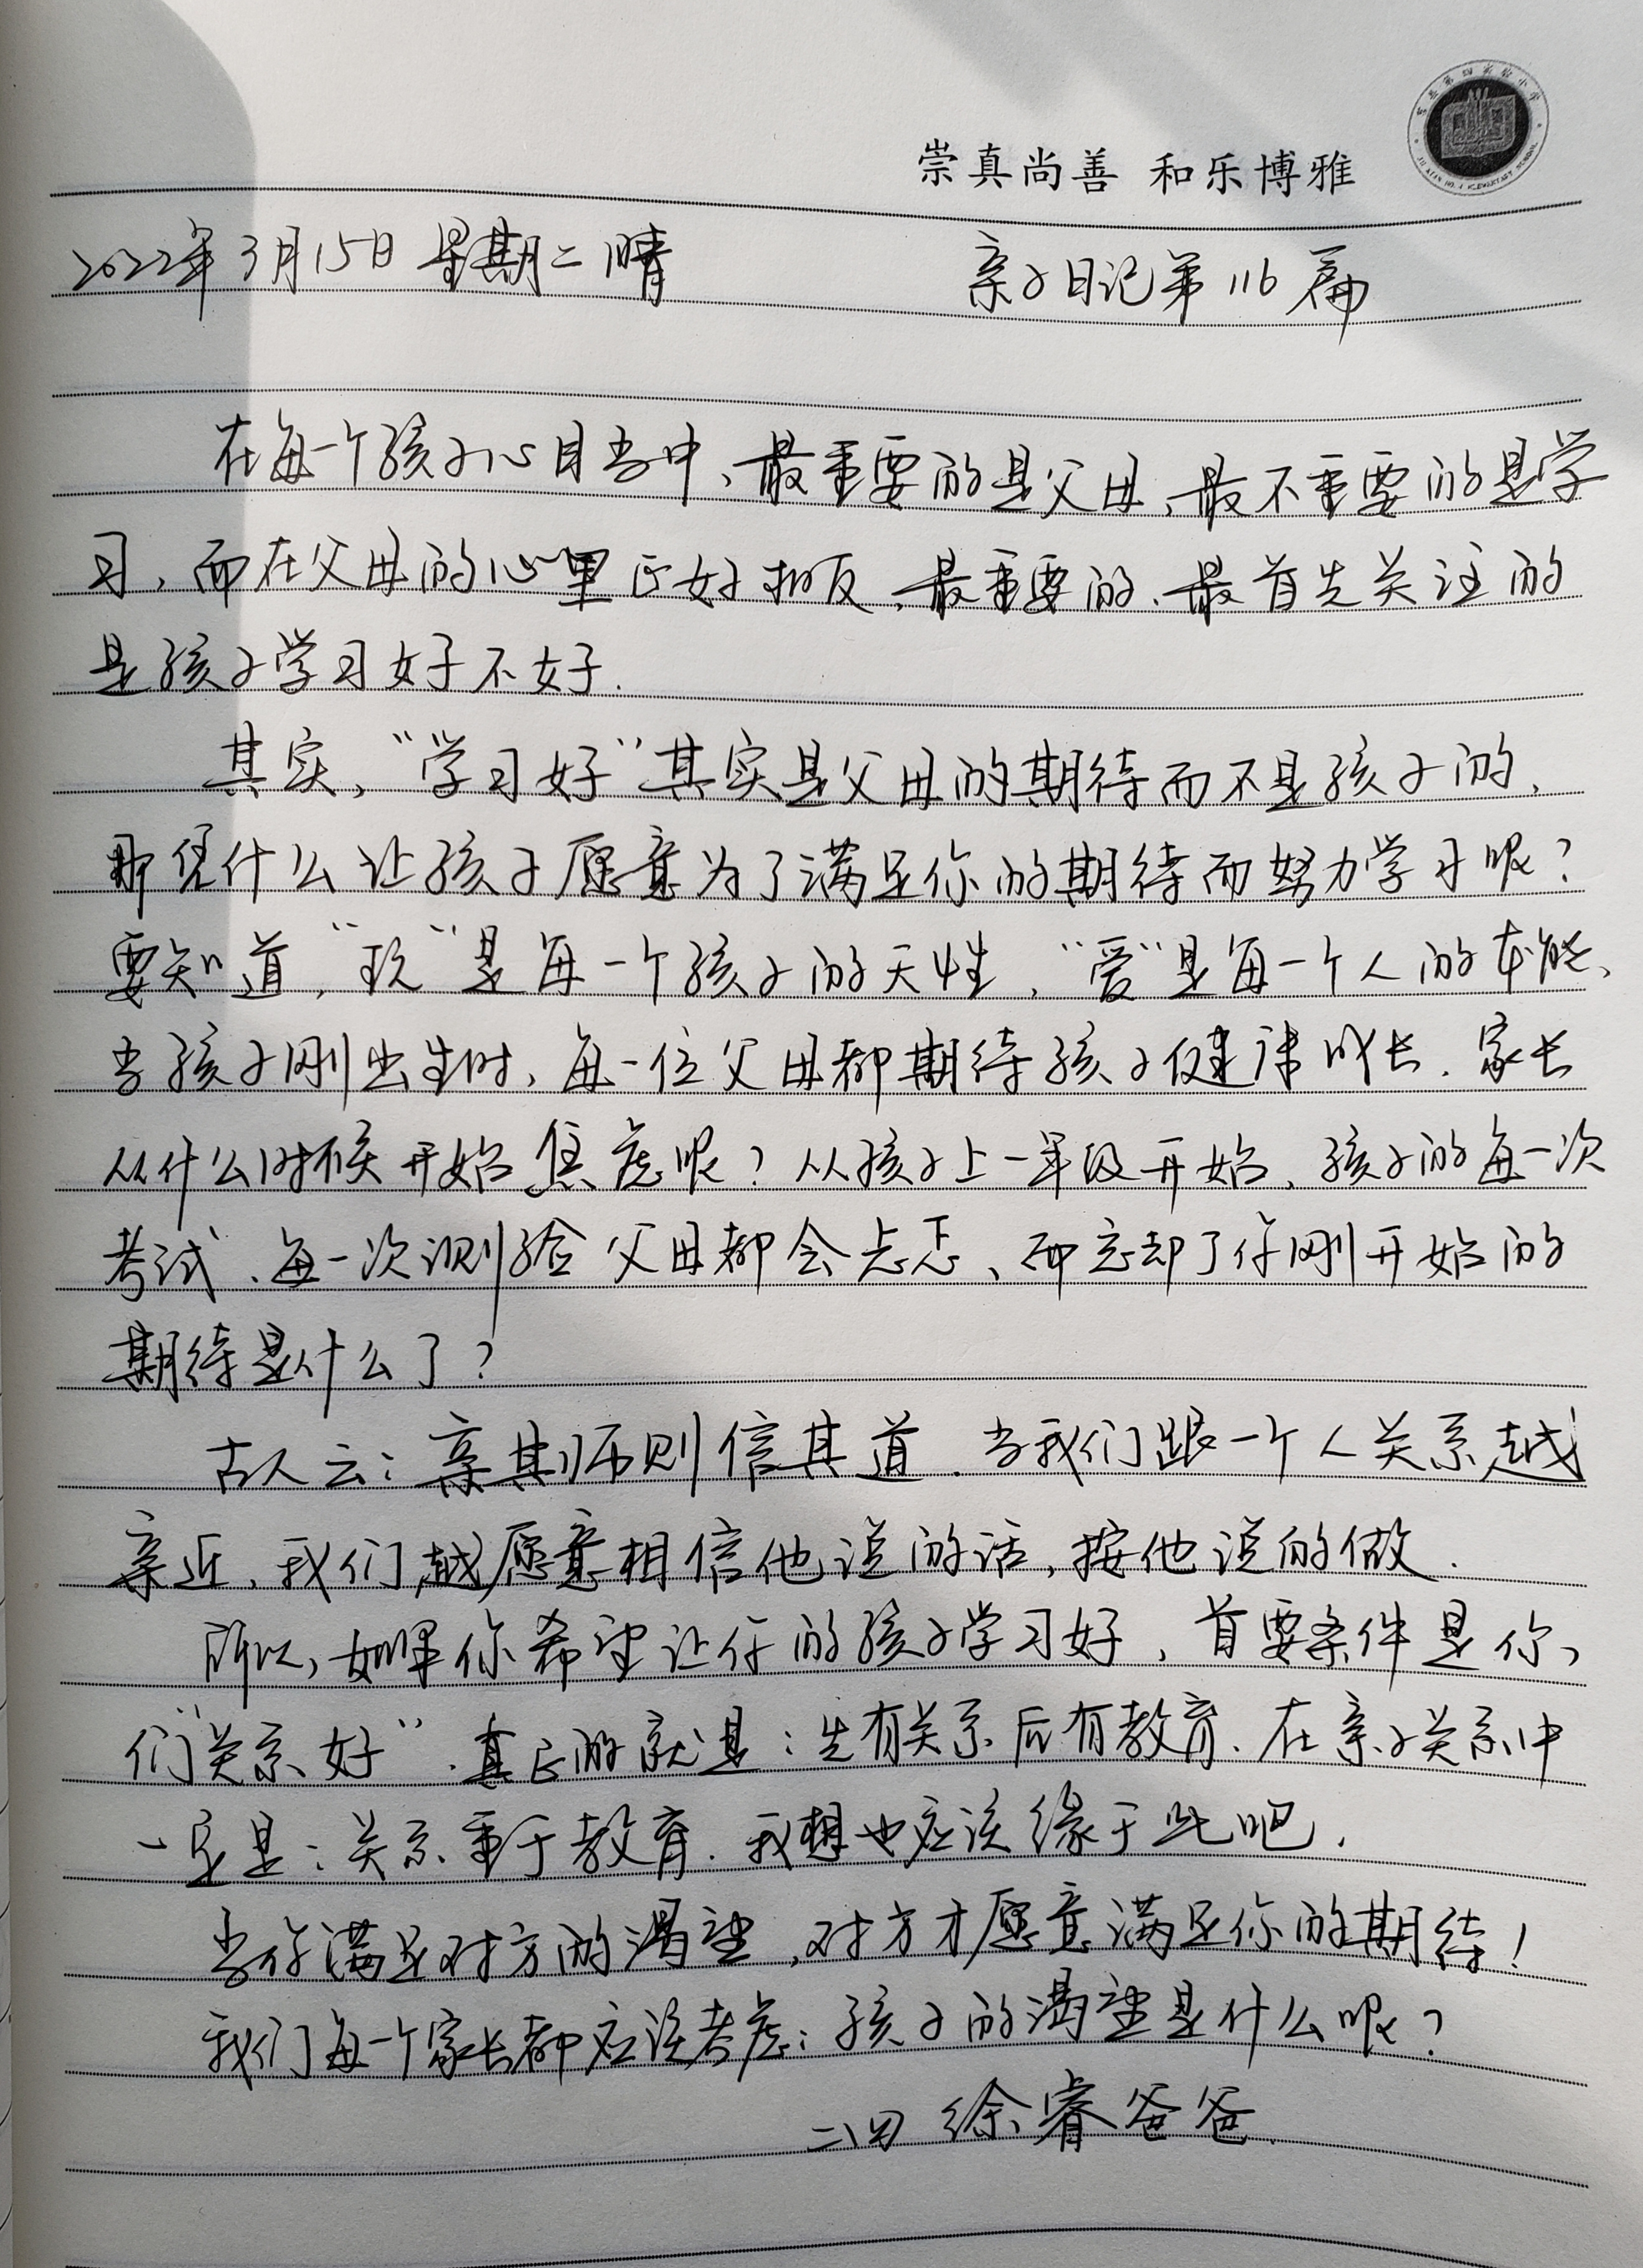 崇真尚善 和乐博雅
2022年3月15日 星期二 晴 亲子日记第116篇
在每一个孩子心目当中、最重要的是父母、最不重要的是学
习，而在父母的心里正好相反，最重要的、最首先关注的
是孩子学习好不好.
其实，“学习好”其实是父母的期待而不是孩子的，
那凭什么让孩子愿意为了满足你的期待而努力学习呢？
要知道，“玩”是每一个孩子的天性，“爱”是每一个人的本能、
当孩子刚出生时，每一位父母都期待孩子健康成长. 家长
从什么时候开始焦虑呢？从孩子上一年级开始、孩子的每一次
考试、每一次测验父母都会忐忑、却忘却了你刚开始的
期待是什么了？
古人云：亲其师则信其道. 当我们跟一个人关系越
亲近，我们越愿意相信他说的话，按他说的做.
所以，如果你希望让你的孩子学习好，首要条件是你、
们“关系好”. 真正的就是：先有关系后有教育. 在亲子关系中
一定是：关系重于教育. 我想也应该缘于此吧.
当你满足对方的渴望，对方才愿意满足你的期待！
我们每一个家长都应该考虑：孩子的渴望是什么呢？
二四 徐睿爸爸.